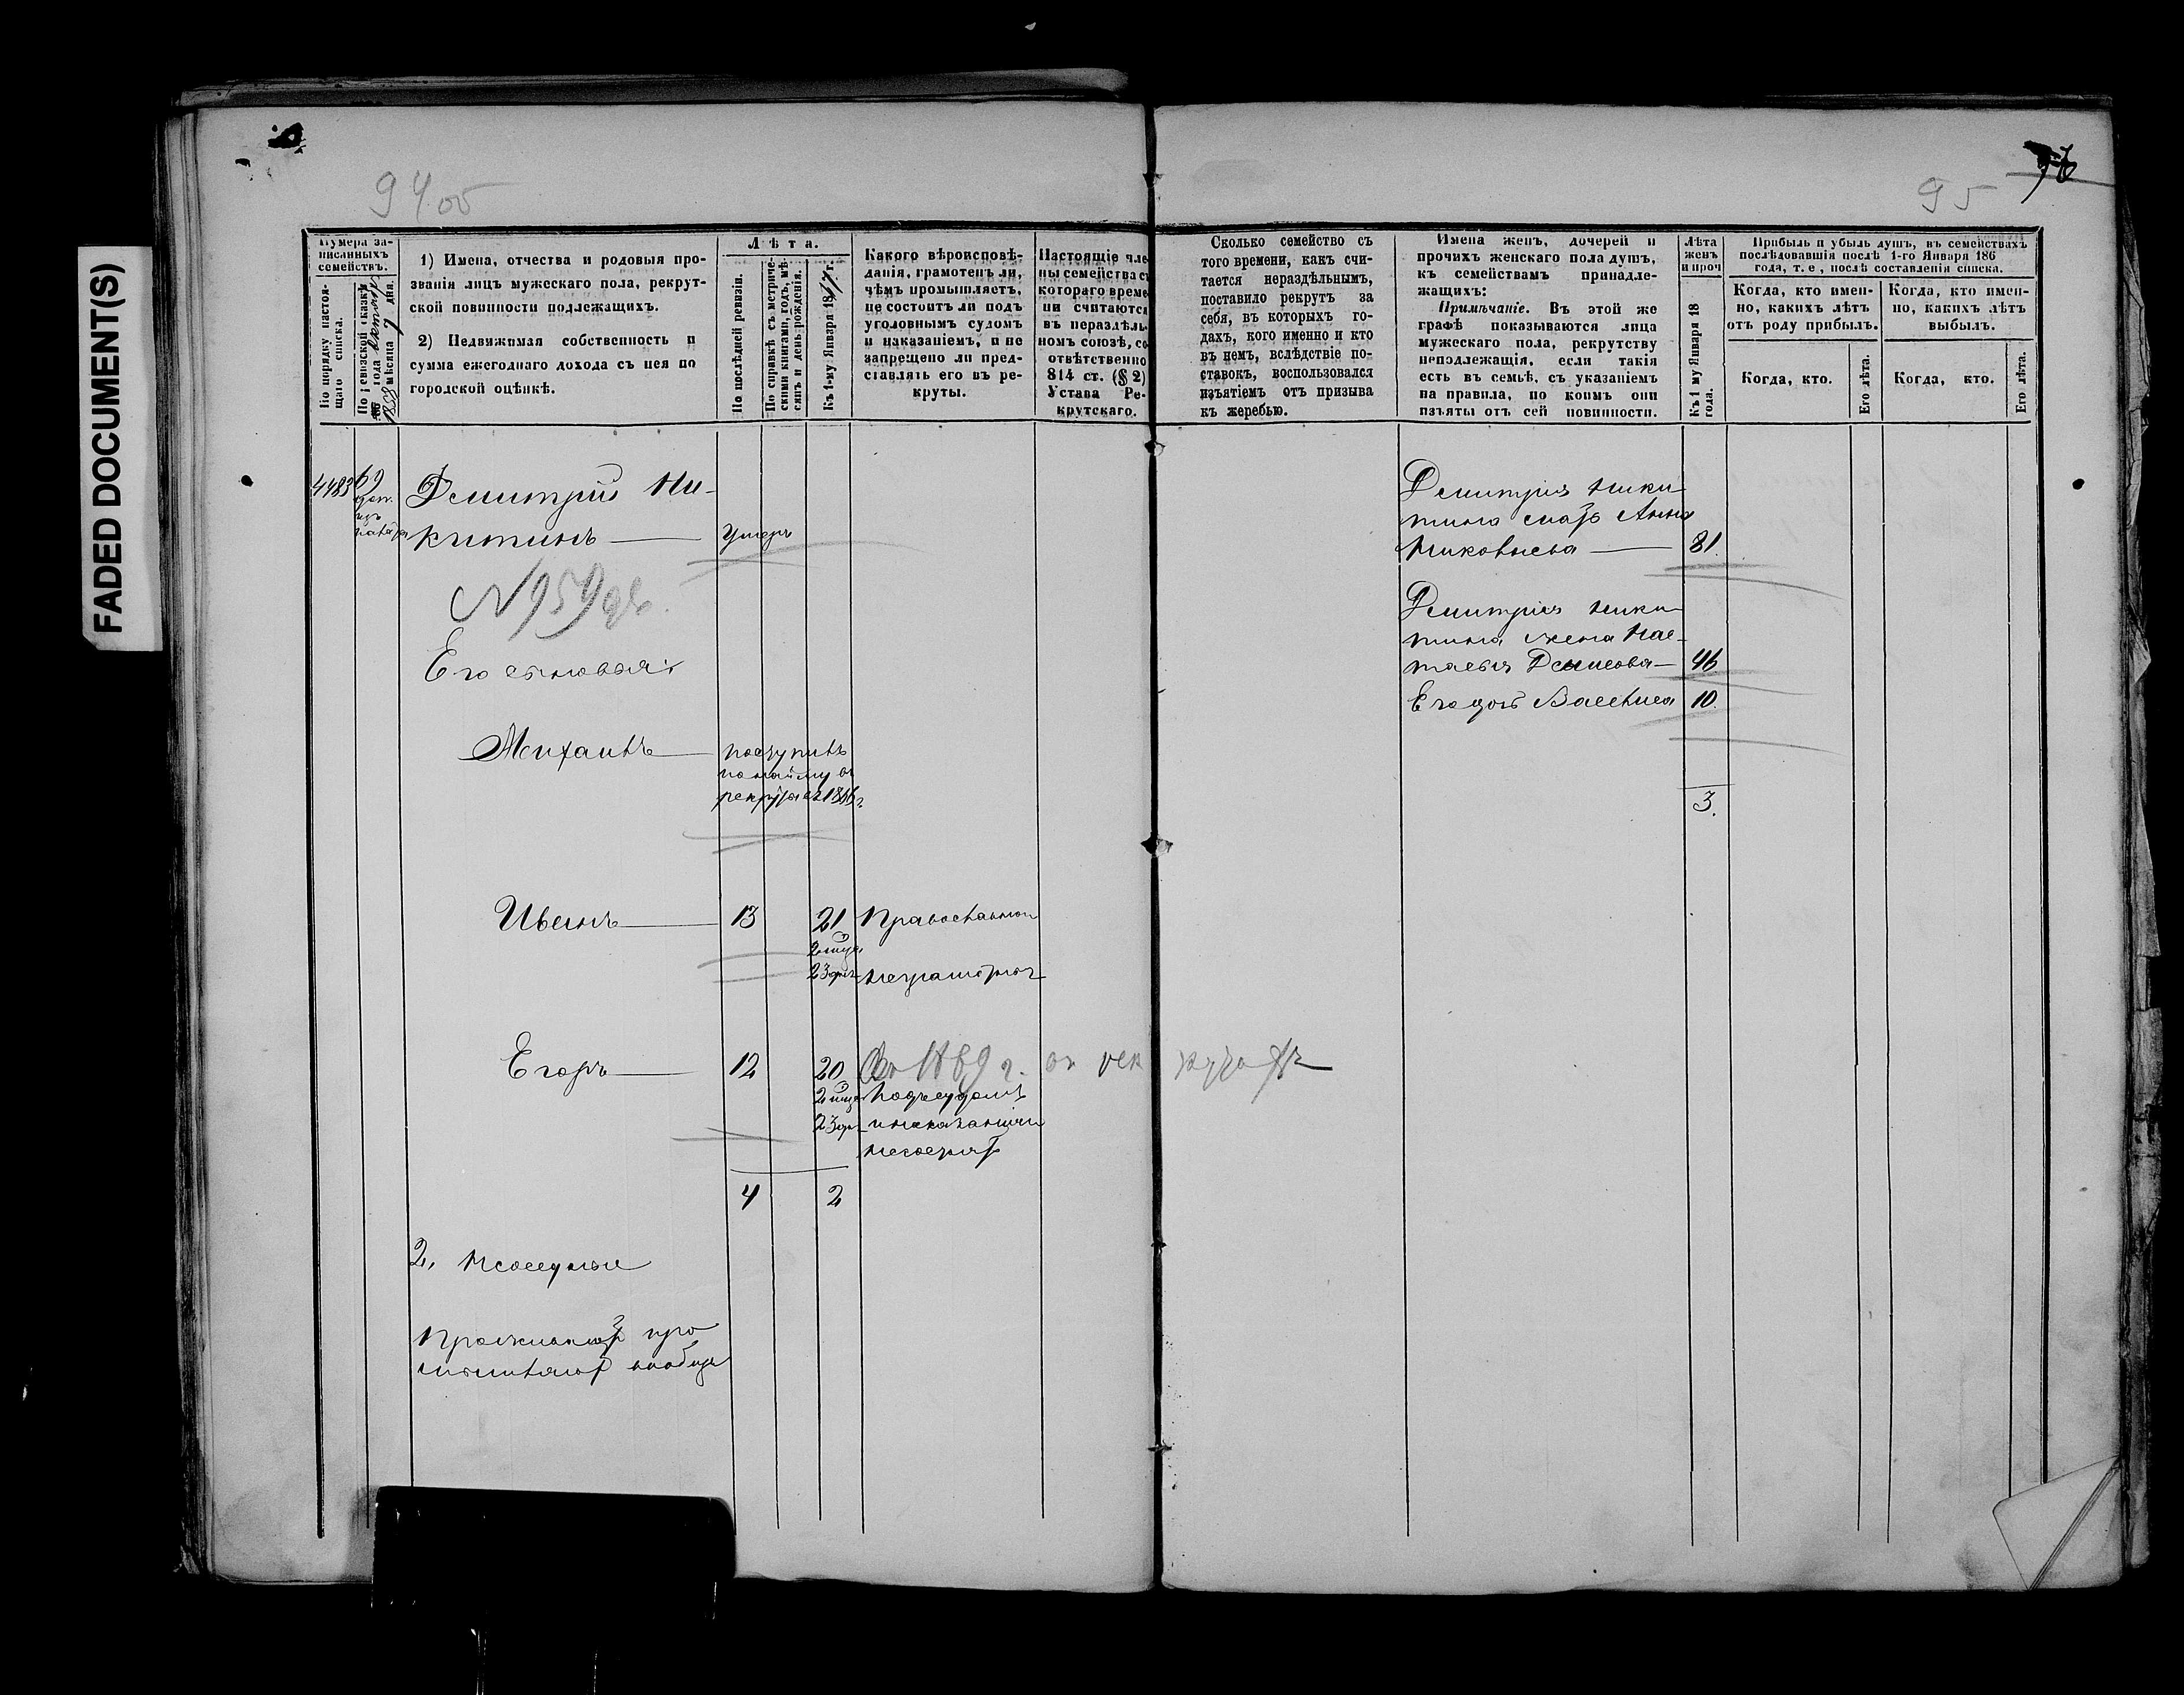 FADED DOCUMENT(S)
94 об
95
Нумера за-
писанныхъ
семействъ.
По порядку настоя-
щаго списка.
По ревизской сказкѣ
года
мѣсяца 7 дня.
1) Имена, отчества и родовыя про-
званія лицъ мужескаго пола, рекрут-
ской повинности подлежащихъ.
2) Недвижимая собственность и
сумма ежегоднаго дохода съ нея по
городской оцѣнкѣ.
Лѣта.
По послѣдней ревизіи.
По справкѣ съ метриче-
скими книгами, годъ, мѣ-
сяцъ и день рожденія.
Къ 1-му Января 18 г.
Какого вѣроисповѣ-
данія, грамотенъ ли,
чѣмъ промышляетъ,
не состоитъ ли подъ
уголовнымъ судомъ
и наказаніемъ, и не
запрещено ли пред-
ставлять его въ ре-
круты.
Настоящіе чле-
ны семейства съ
котораго време-
ни считаются
въ нераздѣль-
номъ союзѣ, со-
отвѣтственно
814 ст. (§ 2)
Устава Ре-
крутскаго.
Сколько семейство съ
того времени, какъ счи-
тается нераздѣльнымъ,
поставило рекрутъ за
себя, въ которыхъ го-
дахъ, кого именно и кто
въ немъ, вслѣдствіе по-
ставокъ, воспользовался
изъятіемъ отъ призыва
къ жеребью.
Имена женъ, дочерей и
прочихъ женскаго пола душъ,
къ семействамъ принадле-
жащихъ:
Примѣчаніе. Въ этой же
графѣ показываются лица
мужескаго пола, рекрутству
неподлежащія, если такія
есть въ семьѣ, съ указаніемъ
на правила, по коимъ они
изъяты отъ сей повинности.
Лѣта
женъ
и проч
Къ 1 му Января 18
года.
Прибыль и убыль душъ, въ семействахъ
послѣдовавшія послѣ 1-го Января 186
года, т. е, послѣ составленія списка.
Когда, кто имен-
но, какихъ лѣтъ
отъ роду прибылъ.
Когда, кто имен-
но, какихъ лѣтъ
выбылъ.
Когда, кто.
Его лѣта.
Когда, кто.
Его лѣта.
4483 69
Демитрій Ни-
китинъ умеръ
N 959
Его сыновья:
Михаилъ поступилъ
по найму въ
рекруты въ 1856 г
Иванъ 13 21 Православнаго
неграмотенъ
Егоръ 12 20 Въ 1869 г. въ рекрутахъ
Подъ судомъ
и наказаніемъ
несостоятъ
4 2
2, Неосѣдлые
Проживаютъ про
мышляютъ вообще
Демитрія Ники
тина мать Анна
81
Демитрія Ники
тина жена Нас-
тасья Денисова 46
Его дочь Васелиса 10
3.